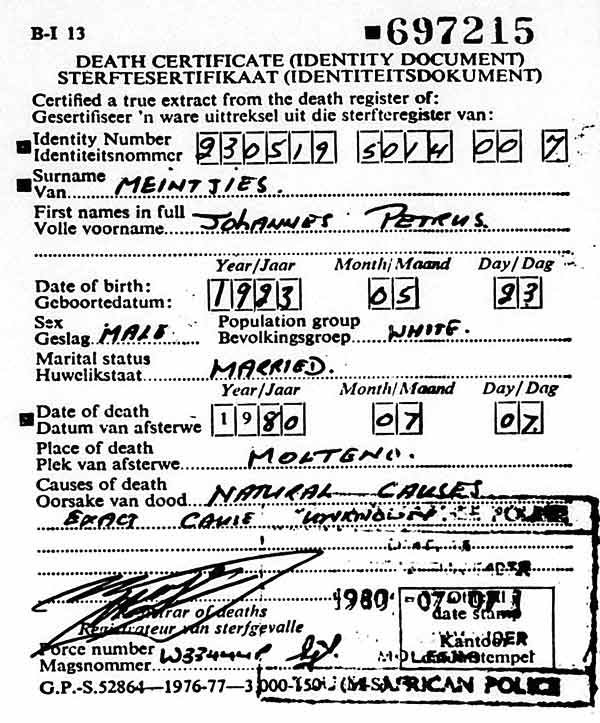 B-I 13 697215
DEATH CERTIFICATE (IDENTITY DOCUMENT)
STERFTESERTIFIKAAT (IDENTITEITSDOKUMENT)
Certified a true extract from the death register of:
Gesertifiseer 'n ware uittreksel uit die sterfteregister van:
Identity Number
Identiteitsnommer 230519 5014 00 7
Surname
Van MEINTJIES.
First names in full
Volle voorname JOHANNES PETRUS.
Year/Jaar Month/Maand Day/Dag
Date of birth:
Geboortedatum: 1923 05 23
Sex Population group
Geslag MALE Bevolkingsgroep WHITE.
Marital status
Huwelikstaat MARRIED.
Year/Jaar Month/Maand Day/Dag
Date of death
Datum van afsterwe 1980 07 07
Place of death
Plek van afsterwe MOLTENO.
Causes of death
Oorsake van dood NATURAL CAUSES
EXACT CAUSE UNKNOWN
1980 -07- Official
date stamp
Registrar of deaths
Registrateur van sterfgevalle
Kantoor
Force number
Magsnommer
G.P.-S.52864—1976-77—3 000-150 (M-S) AFRICAN POLICE